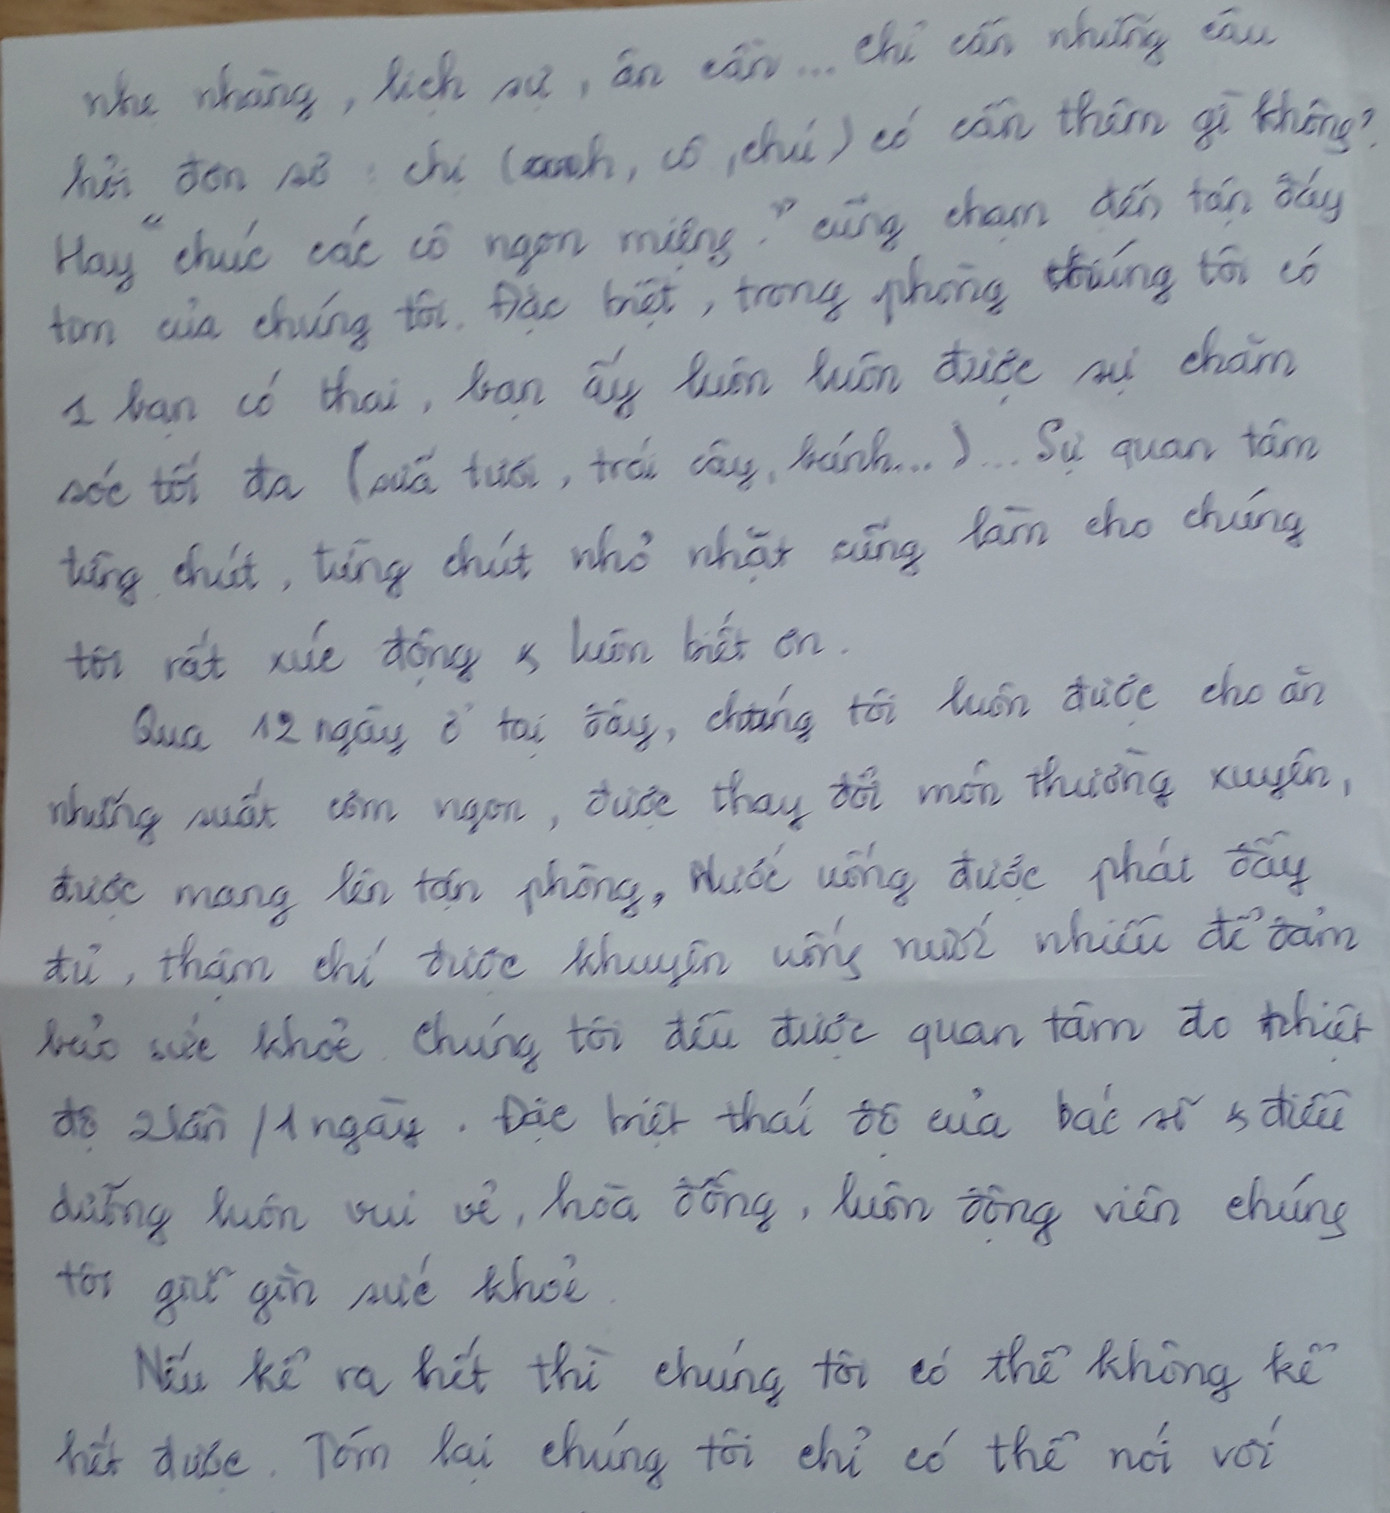 nhẹ nhàng, lịch sự, ân cần... chỉ cần những câu
hỏi đơn sơ: chị (anh, cô, chú) có cần thêm gì không?
Hay "chúc các cô ngon miệng." cũng chạm đến tận đáy
tim của chúng tôi. Đặc biệt, trong phòng chúng tôi có
1 bạn có thai, bạn ấy luôn luôn được sự chăm
sóc tối đa (sữa tươi, trái cây, bánh...)... Sự quan tâm
từng chút, từng chút nhỏ nhặt cũng làm cho chúng
tôi rất xúc động & luôn biết ơn.
Qua 12 ngày ở tại đây, chúng tôi luôn được cho ăn
những suất cơm ngon, được thay đổi món thường xuyên,
được mang lên tận phòng, Nước uống được phát đầy
đủ, thậm chí được khuyên uống nước nhiều để đảm
bảo sức khoẻ. Chúng tôi đều được quan tâm đo nhiệt
độ 2 lần / 1 ngày. Đặc biệt thái độ của bác sĩ & điều
dưỡng luôn vui vẻ, hoà đồng, luôn động viên chúng
tôi giữ gìn sức khoẻ.
Nếu kể ra hết thì chúng tôi có thể không kể
hết được. Tóm lại chúng tôi chỉ có thể nói với